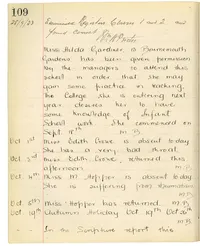 109
Examined Registers Classes 1 and 2 and
found correct
Miss Hilda Gardner of Bournemouth
Gardens has been given permission
by the managers to attend this
school in order that she may
gain some practice in working.
The College she is entering next
year desires her to have
some knowledge of Infant
School work. She commenced on
Sept. M.B.
Oct 1st Miss Edith Cooke is absent today
She has a very bad throat. M.B.
Oct 3rd Miss Edith Cooke returned this
afternoon M.B.
Oct Miss M. Hopper is absent today
She is suffering from rheumatism
M.B.
Oct Miss Hopper has returned. M.B.
Oct 19th Autumn Holiday Oct 19th Oct 26th
M.B.
In the Scripture report this